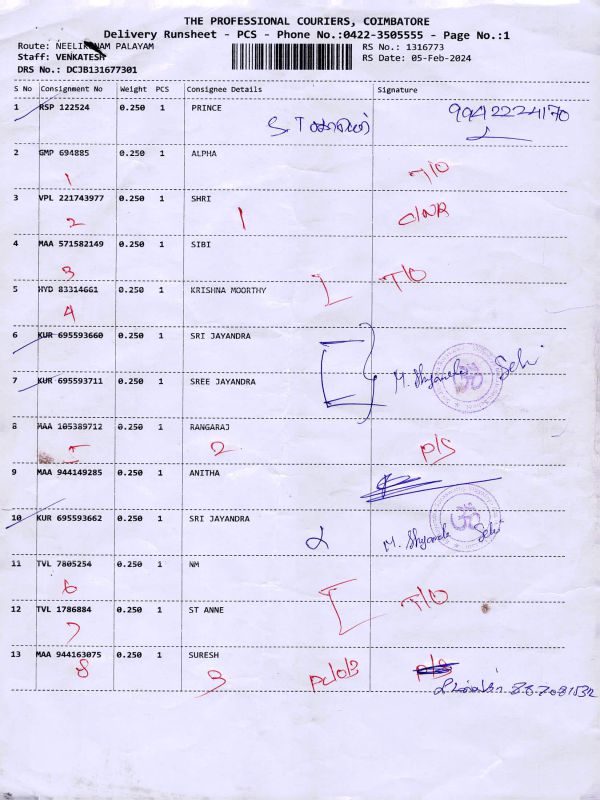 THE PROFESSIONAL COURIERS, COIMBATORE
Delivery Runsheet - PCS - Phone No.:0422-3505555 - Page No.:1
Route: NEELIKONAM PALAYAM RS No.: 1316773
Staff: VENKATESH RS Date: 05-Feb-2024
DRS No.: DCJB131677301
S No Consignment No Weight PCS Consignee Details Signature
1 RSP 122524 0.250 1 PRINCE 9942224170
2 GMP 694885 0.250 1 ALPHA
1 T/O
3 VPL 221743977 0.250 1 SHRI
2 1 C/NR
4 MAA 571582149 0.250 1 SIBI
3 T/O
5 HYD 83314661 0.250 1 KRISHNA MOORTHY
4
6 KUR 695593660 0.250 1 SRI JAYANDRA
M. Shyamala
7 KUR 695593711 0.250 1 SREE JAYANDRA
8 MAA 105389712 0.250 1 RANGARAJ
5 2 P/S
9 MAA 944149285 0.250 1 ANITHA
10 KUR 695593662 0.250 1 SRI JAYANDRA
M. Shyamala
11 TVL 7805254 0.250 1 NM
6 T/O
12 TVL 1786884 0.250 1 ST ANNE
7
13 MAA 944163075 0.250 1 SURESH
8 3 P/S